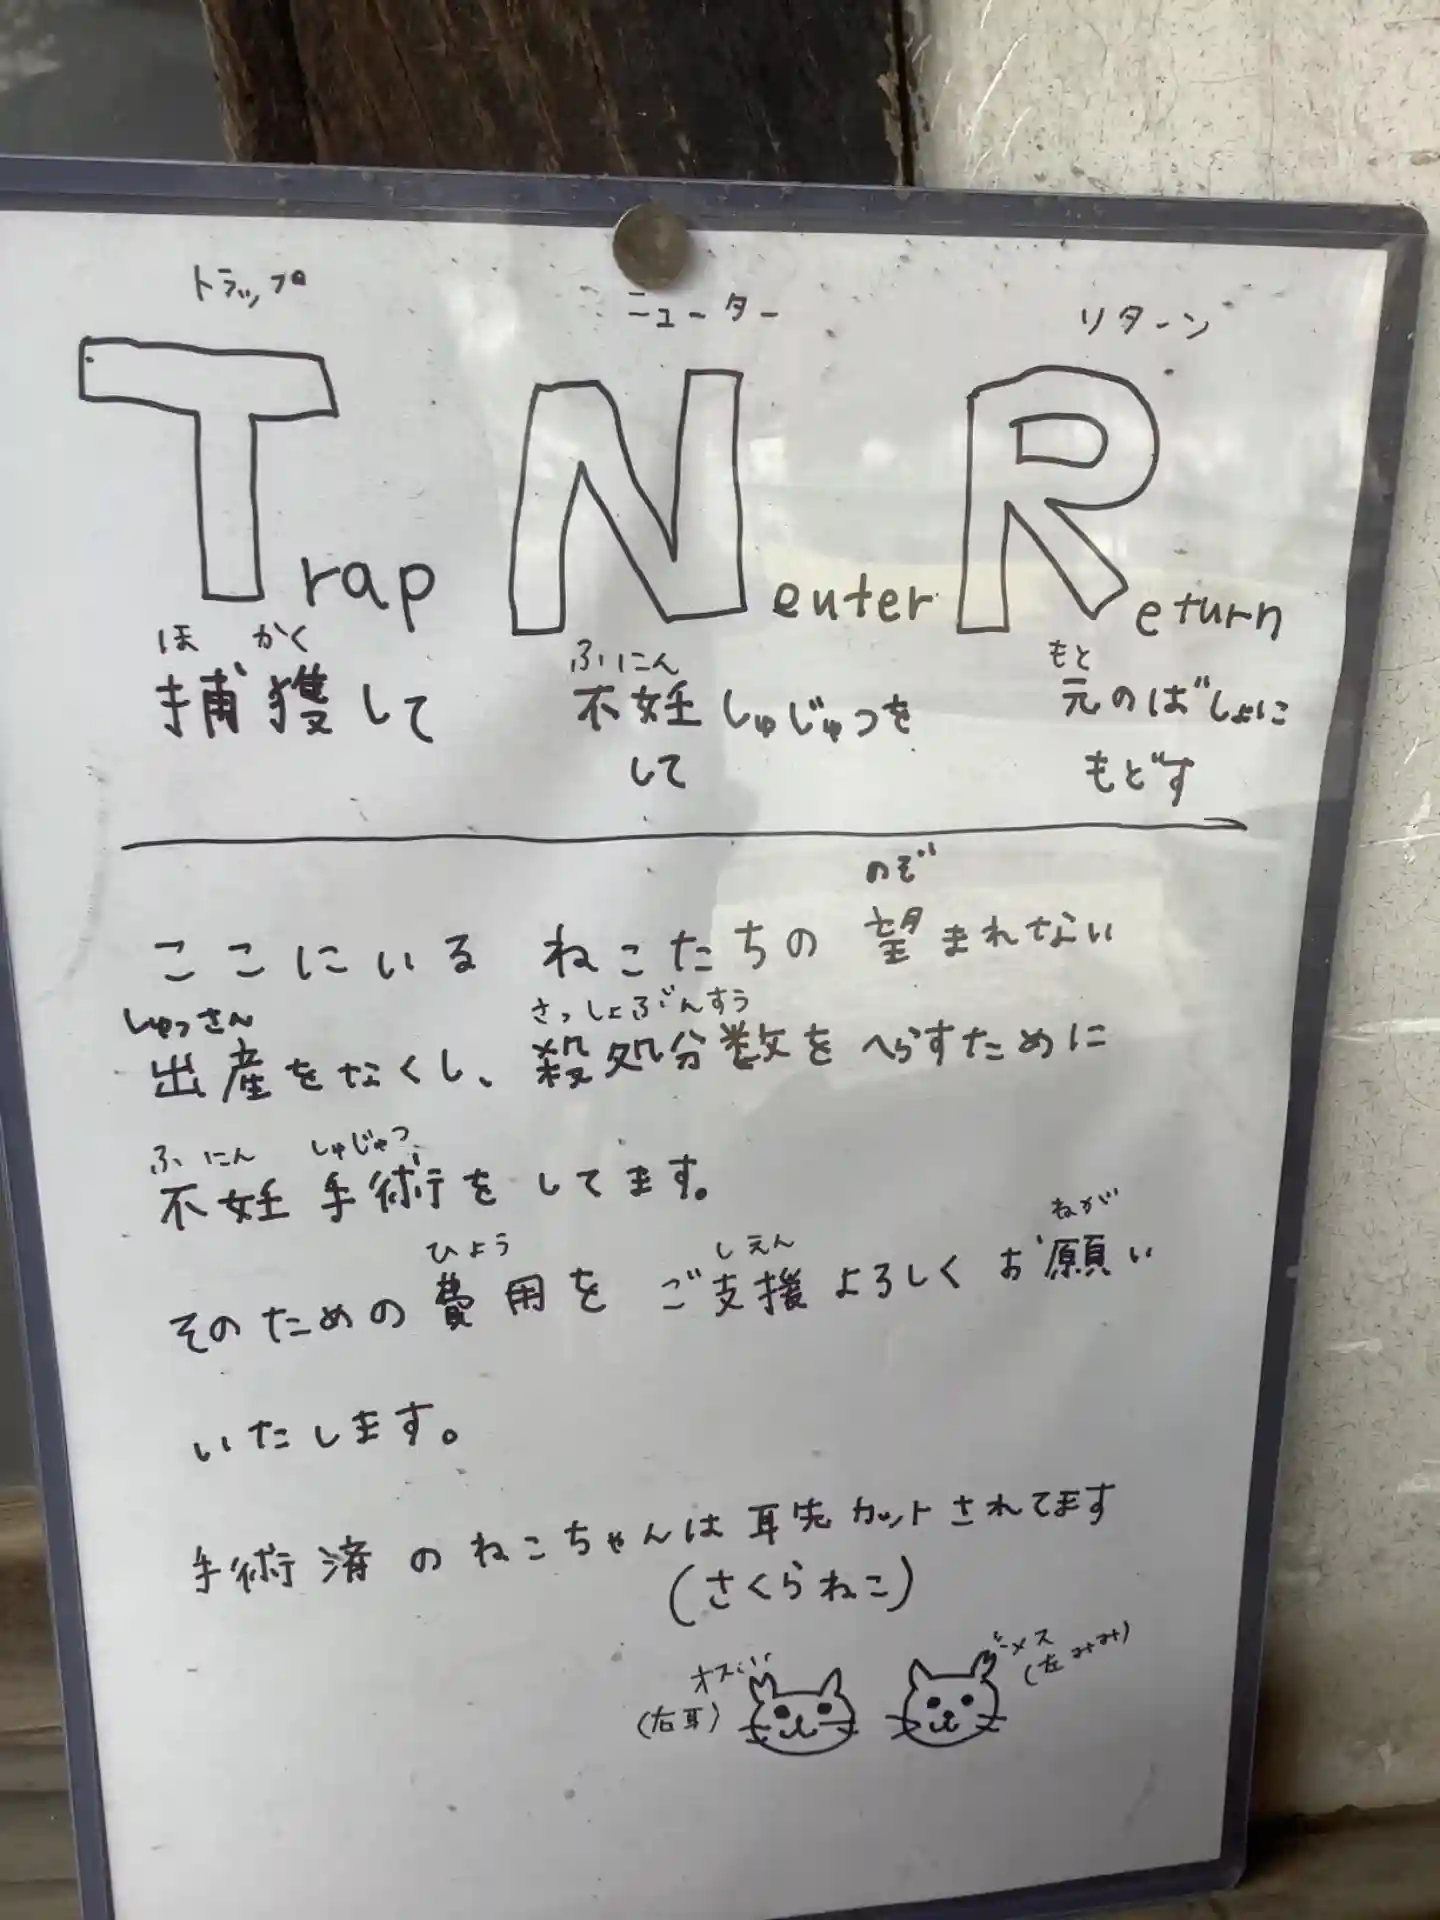 トラップ ニューター リターン
Trap Neuter Return
ほ かく ふにん もと
捕獲して 不妊しゅじゅつを 元のばしょに
して もどす
のぞ
ここにいる ねこたちの 望まれない
しゅっさん さっしょぶんすう
出産をなくし、殺処分数をへらすために
ふにん しゅじゅつ
不妊 手術を してます。
ひよう しえん ねが
そのための 費用を ご支援よろしくお願い
いたします。
手術済のねこちゃんは耳先カットされてます
(さくらねこ)
オス メス
(右耳) (左みみ)